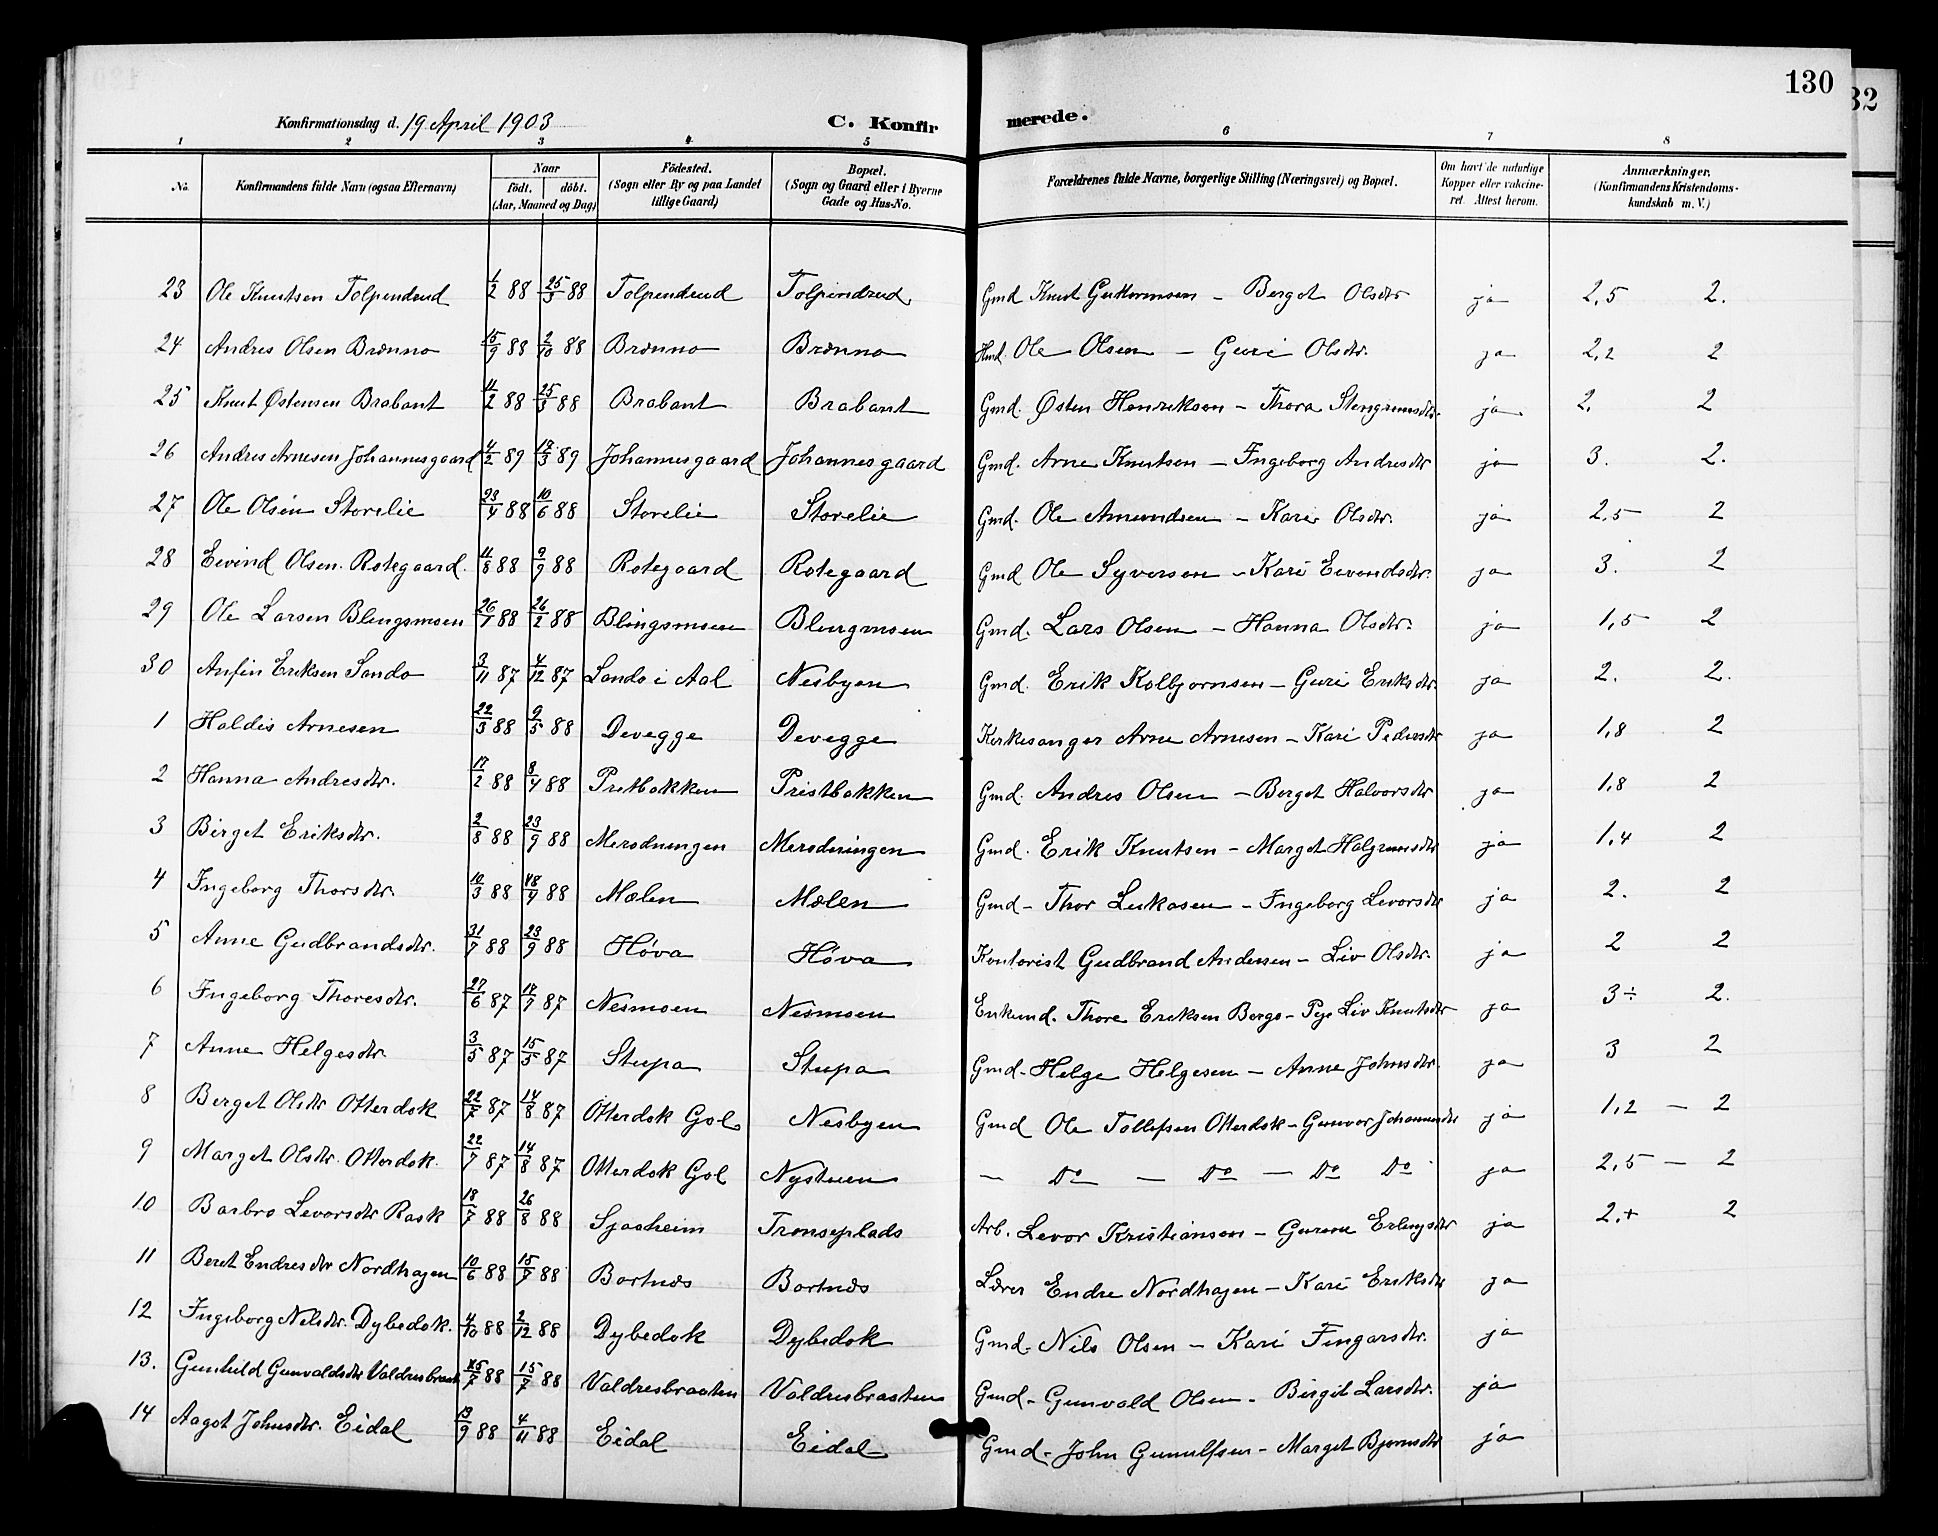 130
32
Konfirmationsdag d. 19 April 1903 C. Konfir merede.
1 2 3 4 5 6 7 8
No. Konfirmandens fulde Navn (ogsaa Efternavn) Naar födt. döbt. (Aar, Maaned og Dag) Födested. (Sogn eller By og paa Landet tillige Gaard) Bopæl. (Sogn og Gaard eller i Byerne Gade og Hus-No. Forældrenes fulde Navne, borgerlige Stilling (Næringsvei) og Bopæl. Om havt de naturlige Kopper eller vaksineret. Attest herom. Anmærkninger. (Konfirmandens Kristendomskundskab m. V.)
23 Ole Knutsen Tolpendrud 1/2 88 25/3 88 Tolpendrud Tolpendrud Gmd Knut Guttormsen - Berget Olsdtr ja 2,5 2.
24 Andres Olsen Brenno 15/9 88 2/10 88 Brenno Brenno Hmd. Ole Olsen - Guri Olsdtr. ja 2,2 2
25 Knut Østensen Brabant 11/2 88 25/3 88 Brabant Brabant Gmd. Østen Henriksen - Thora Stengrimsdtr. ja 2. 2
26 Andres Arnesen Johannesgaard 4/2 89 13/3 89 Johannesgaard Johannesgaard Gmd. Arne Knutsen - Ingeborg Andresdtr ja 3. 2.
27 Ole Olsen Storelie 23/4 88 10/6 88 Storelie Storelie Gmd. Ole Amundsen - Kari Olsdtr. ja 2,5 2
28 Eivind Olsen Rotegaard 11/8 88 9/9 88 Rotegaard Rotegaard Gmd Ole Syversen - Kari Eivendsdtr. ja 3. 2
29 Ole Larsen Blingsmoen 26/1 88 26/2 88 Blingsmoen Blingmoen Gmd. Lars Olsen - Hanna Olsdtr. ja 1,5 2
30 Anfin Eriksen Sando 3/11 87 4/12 87 Sando i Aal Nesbyen Gmd. Erik Kolbjørnsen - Guri Eriksdtr. ja 2. 2.
1 Haldis Arnesen 22/3 88 9/5 88 Devegge Devegge Kirkesanger Arne Arnesen - Kari Pedersdtr ja 1,8 2
2 Hanna Andresdtr. 17/2 88 8/4 88 Pretbakken Pristbakken Gmd. Andres Olsen - Berget Halvorsdtr ja 1,8 2
3 Birget Eriksdtr. 2/8 88 23/9 88 Merodningen Merodningen Gmd. Erik Knutsen - Marget Halgrimsdtr ja 1,4 2
4 Ingeborg Thorsdtr. 10/3 88 18/4 88 Mælen Mælen Gmd - Thor Lukasen - Ingeborg Levorsdtr ja 2. 2
5 Anne Gudbrandsdtr. 31/7 88 23/9 88 Høva Høva Kontorist Gudbrand Andersen - Liv Olsdtr. ja 2 2
6 Ingeborg Thoresdtr. 27/6 87 17/7 87 Nesmoen Nesmoen Enkemd. Thore Eriksen Bergo - Pige Liv Knutsdtr ja 3÷ 2.
7 Anne Helgesdtr. 3/5 87 15/5 87 Stupa Stupa Gmd - Helge Helgesen - Anne Johnsdtr. ja 3 2
8 Berget Olsdtr Otterdok 22/7 87 14/8 87 Otterdok Gol Nesbyen Gmd Ole Tollefsen Otterdok - Gunvor Johannesdtr ja 1,2 - 2
9 Marget Olsdtr. Otterdok. 22/7 87 14/8 87 Otterdok Gol Nystuen - Do - Do - Do Do ja 2,5 - 2
10 Barbro Levorsdtr Rask 18/7 88 26/8 88 Sjaaheim Tronseplads Arb. Levor Kristiansen - Gurine Erlingsdtr ja 2.+ 2
11 Beret Endresdtr Nordhagen 10/6 88 15/7 88 Bortnes Bortnes Lærer Endre Nordhagen - Kari Eriksdtr ja
12 Ingeborg Nelsdtr. Dybedok. 4/10 88 2/12 88 Dybedok Dybedok Gmd. Nils Olsen - Kari Fingarsdtr. ja
13. Gunhild Gunvaldsdtr Valdresbraat 15/7 88 Valdresbraaten Valdresbraaten Gmd - Gunvald Olsen - Birgit Larsdtr. ja
14 Aagot Johnsdtr. Eidal 13/9 88 4/11 88 Eidal Eidal Gmd - John Gunulfsen - Marget Bjørnsdtr ja